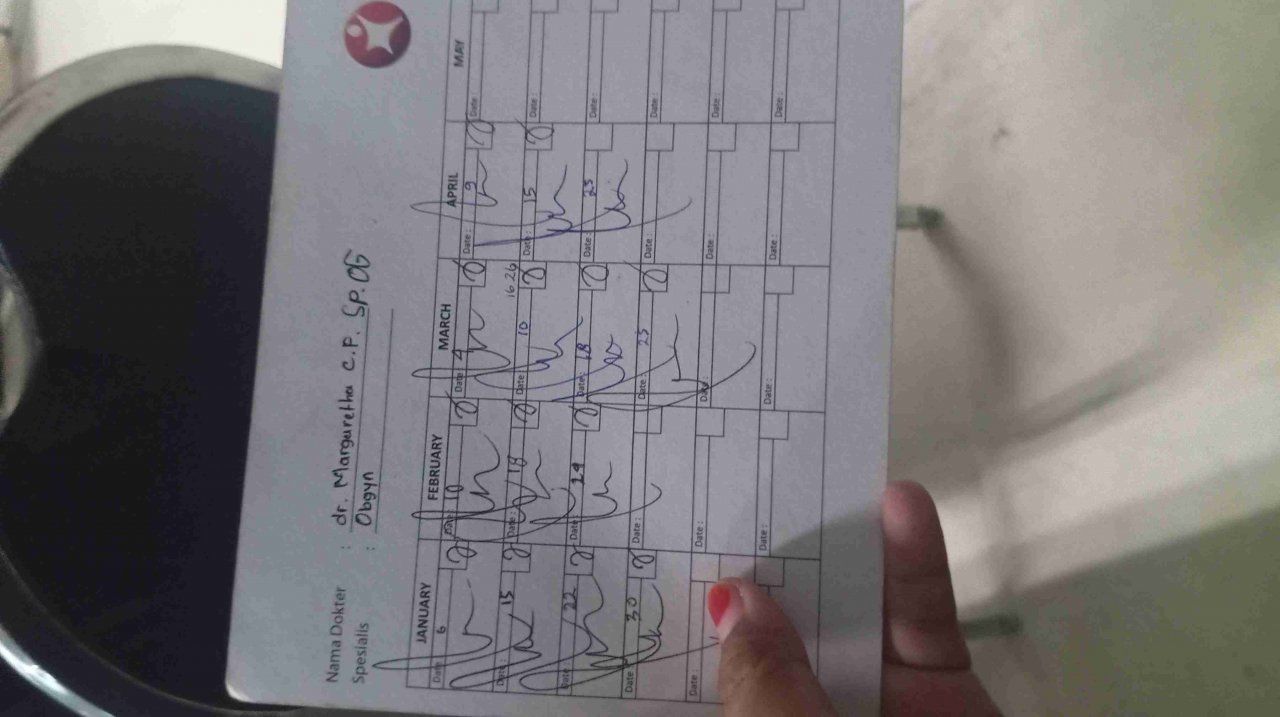 Nama Dokter : dr. Margaretha C.P. SP.OG
Spesialis : Obgyn
JANUARY FEBRUARY MARCH APRIL MAY
Date : 6 Date : 10 Date : 4 Date : 9 Date :
16.26
Date : 15 Date : 18 Date : 10 Date : 15 Date :
Date : 22 Date : 24 Date : 18 Date : 23 Date :
Date : 30 Date : Date : 25 Date : Date :
Date : Date : Date : Date : Date :
Date : Date : Date : Date :